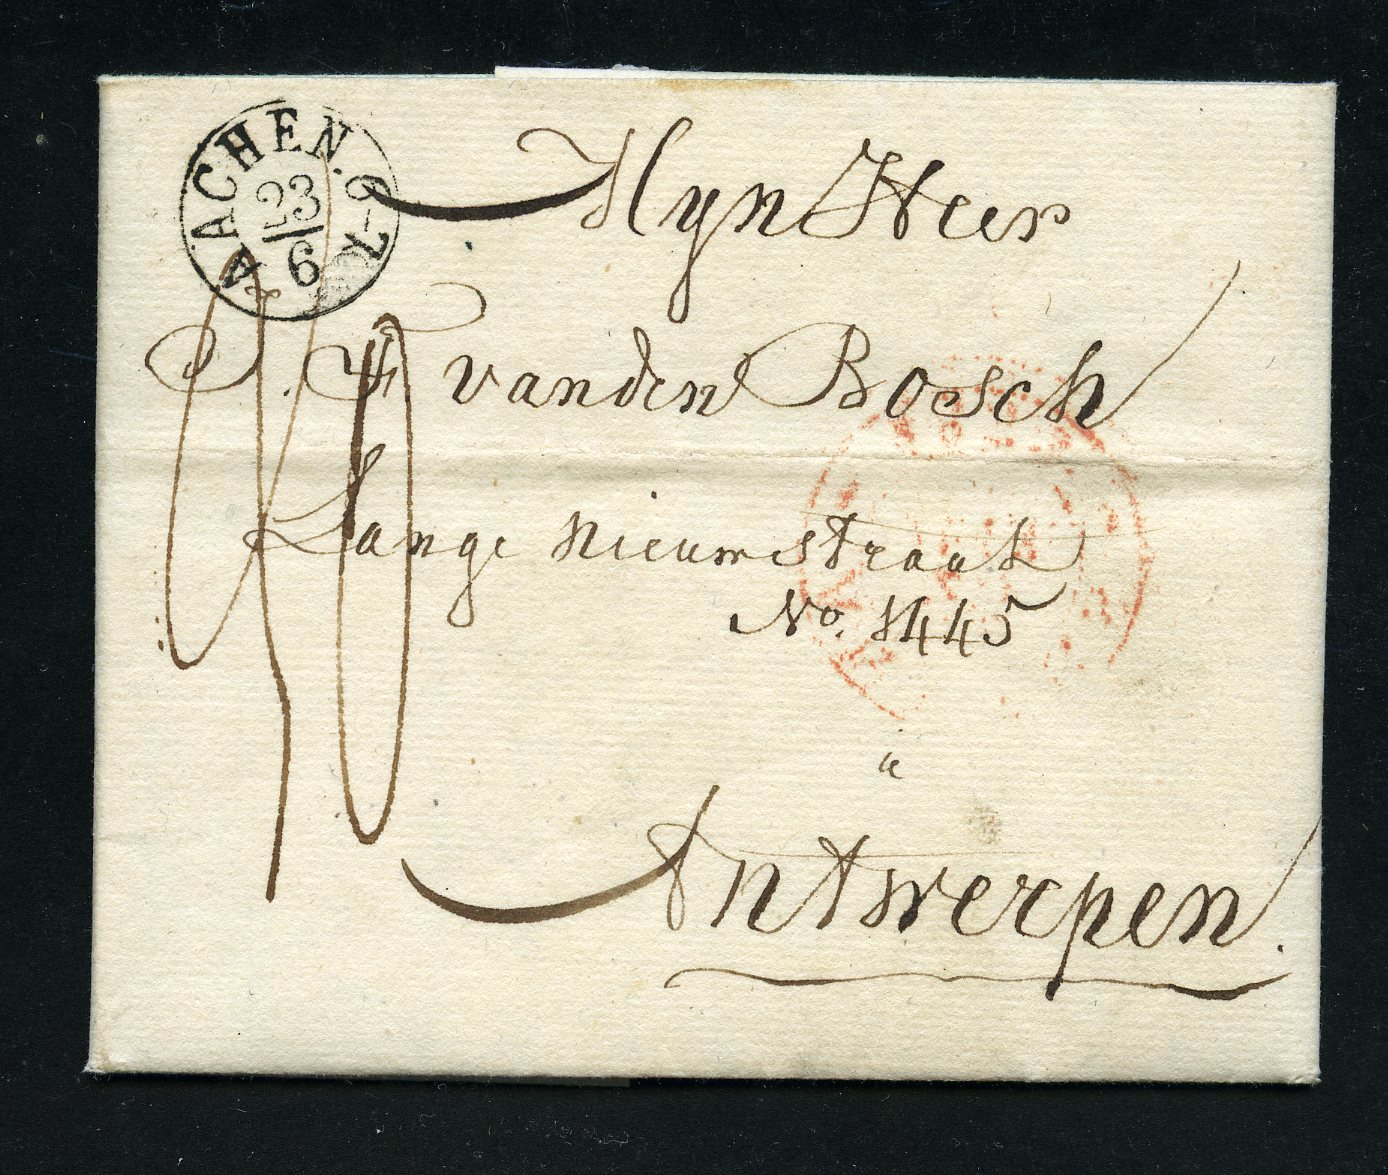 AACHEN. 6-7
23
6
Myn Heer
J. F. vanden Bosch
Lange Nieuwstraat
No. 1445
a
Antwerpen.